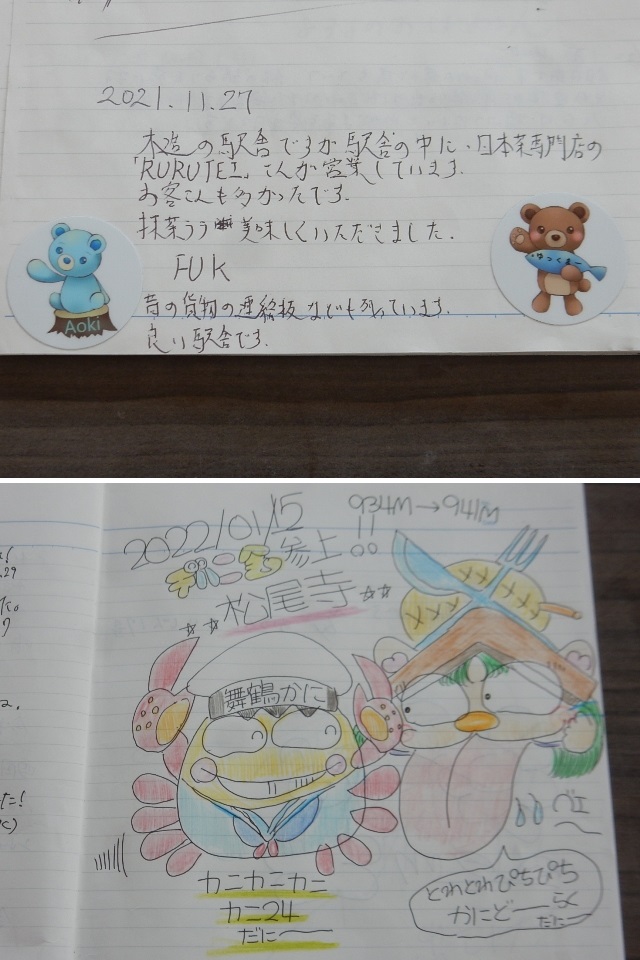 2021.11.27
木造の駅舎ですが駅舎の中に、日本茶専門店の
「RURUTEI」さんが営業しています。
お客さんも多かったです。
抹茶ララ 美味しくいただきました。
FUK
昔の貨物の連絡板なども残っています。
良い駅舎です。
Aoki
ゆっくまー
2022/01/15
934M→941M
デハニ 参上!!
☆☆松尾寺☆☆
舞鶴かに
ベエ〜
とれとれぴちぴち
かにどーらく
だに—
カニカニカニ
カニ24
だに〜